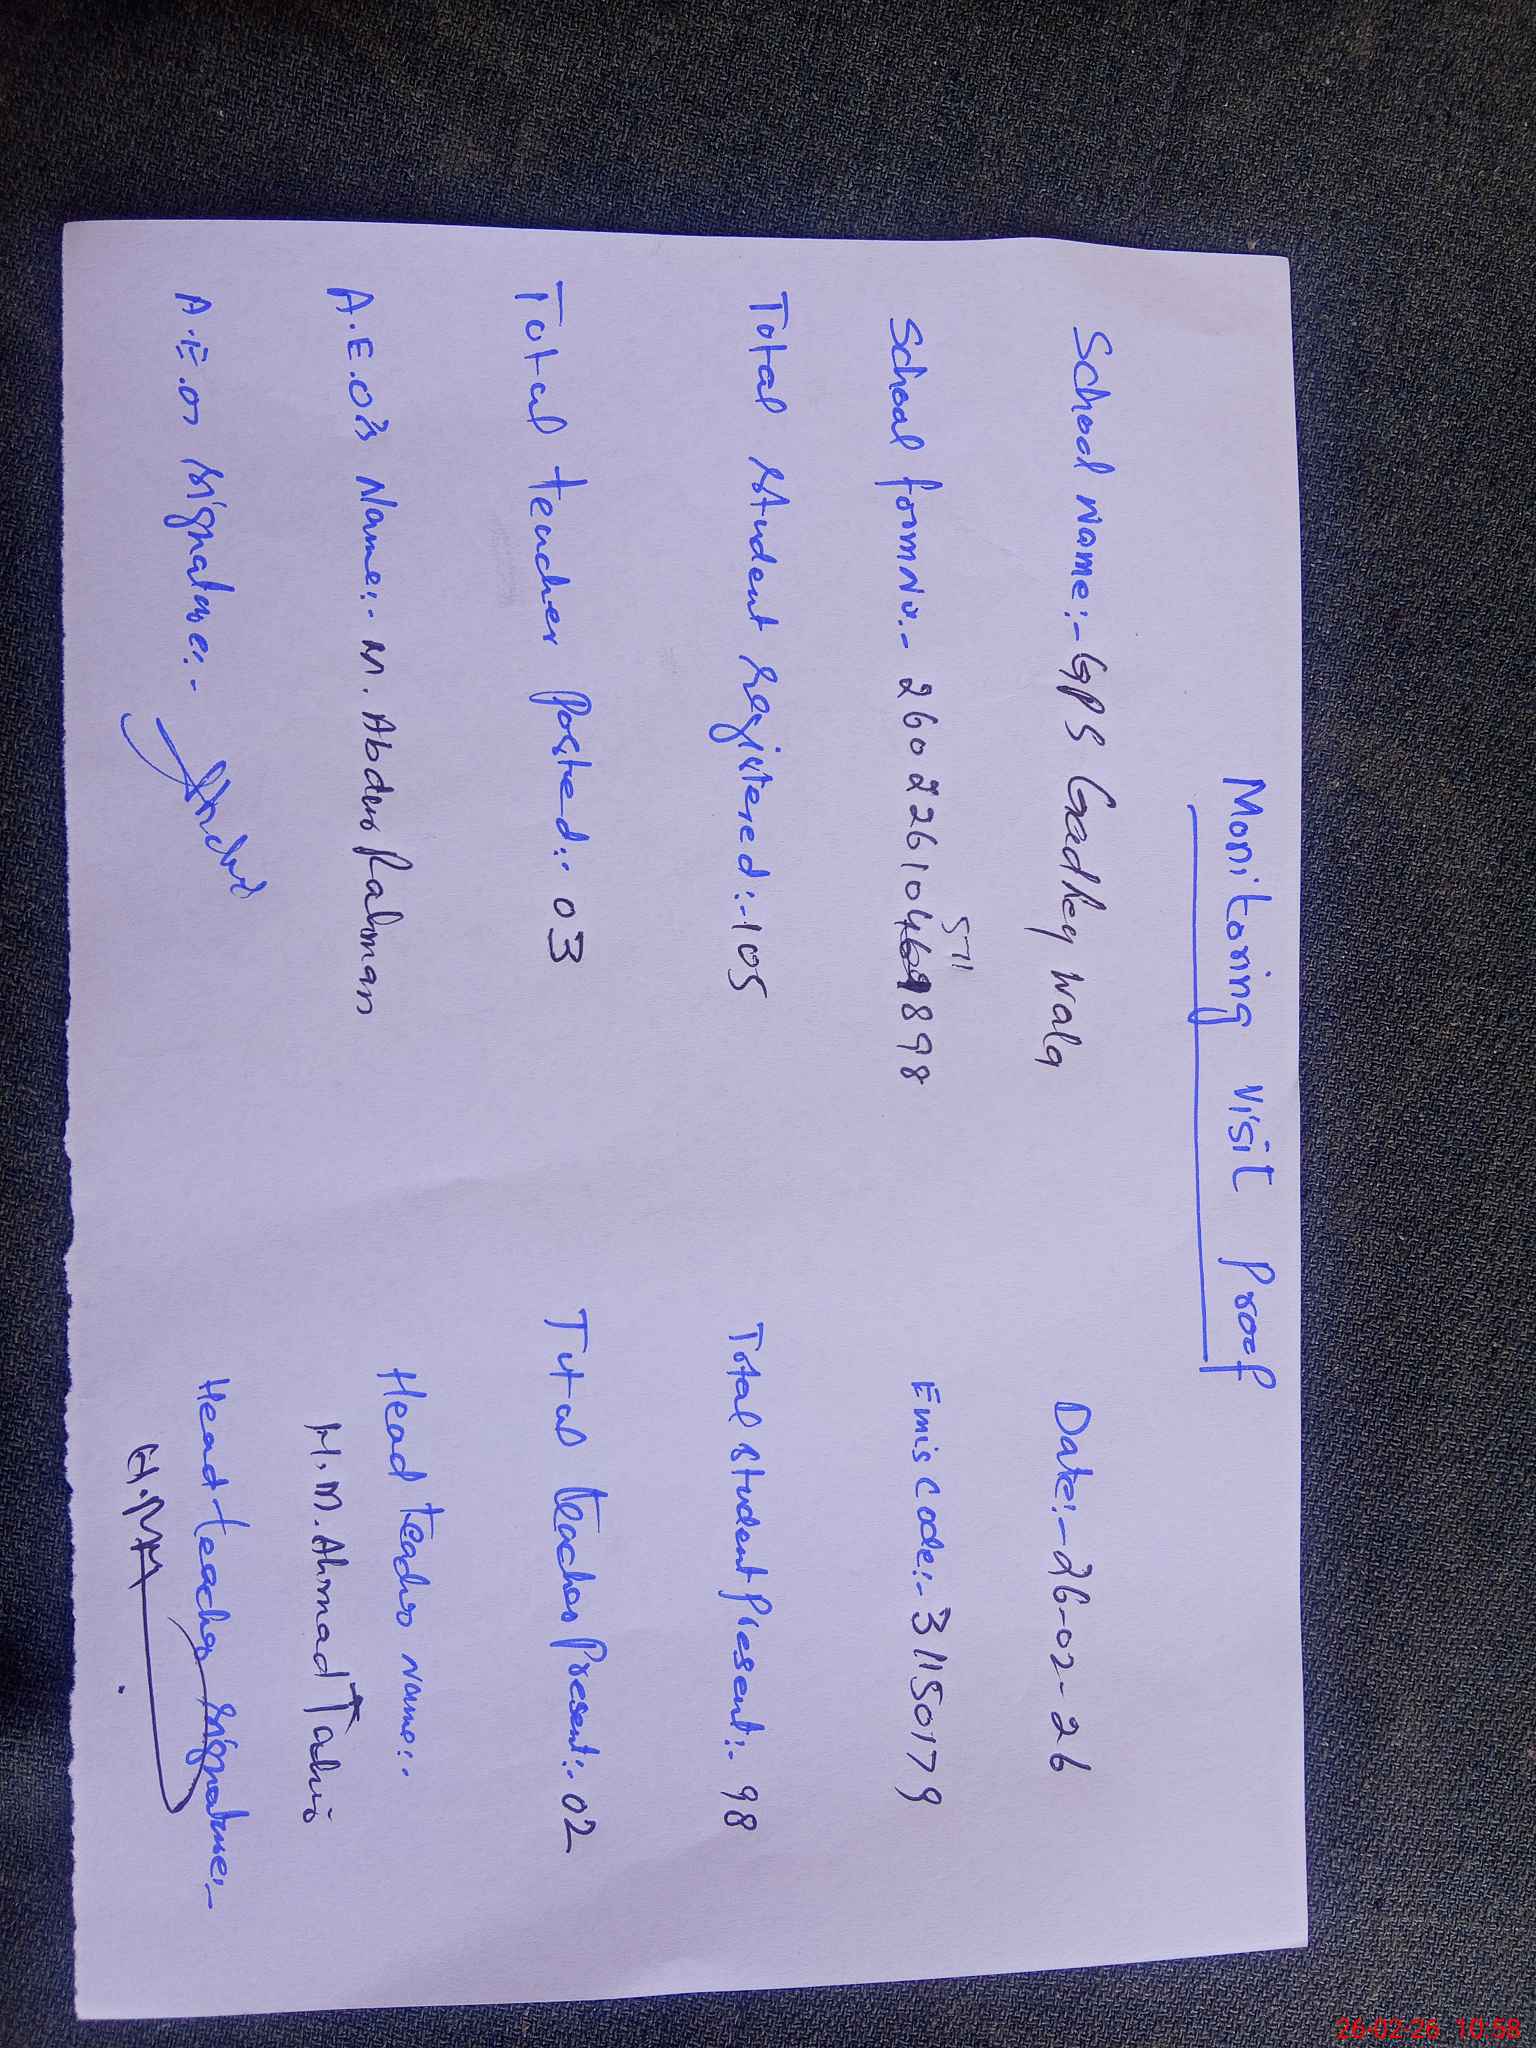 Monitoring Visit Proof
School Name:- GPS Gadhey Wala
Date:- 26-02-26
School form No.- 26022610
5711
898
Emis Code:- 31150179
Total Student Registered:- 105
Total Student Present:- 98
Total teacher posted:- 03
Total teacher Present:- 02
A.E.O's Name:- M. Abdur Rahman
Head teacher Name:-
H.M. Ahmad Tahir
A.E.O's signature:-
Head teacher signature:-
26-02-26 10:58